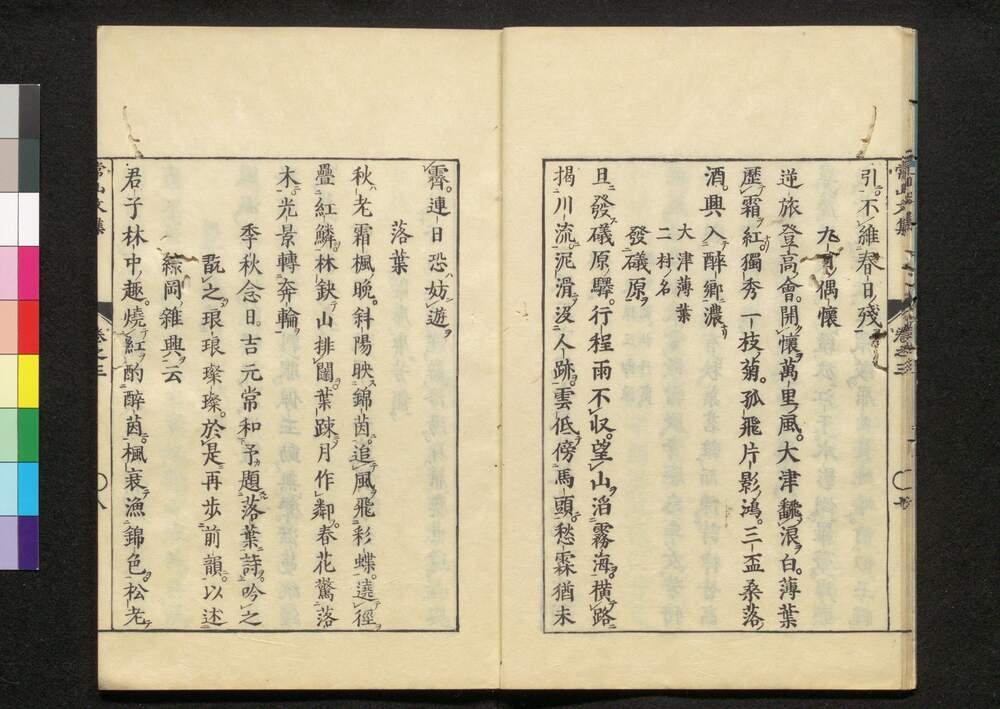 引。不維春日殘
九月偶懷
逆旅登高會。開懷萬里風。大津飜浪白。薄葉
歷霜紅。獨秀一枝菊。孤飛片影鴻。三盃桑落
酒。興入醉鄉濃
大津薄葉
二村名
發礒原
旦發礒原驛。行程雨不収。望山滔霧海。橫路
揭川流。泥滑沒人跡。雲低傍馬頭。愁霖猶未
霽。連日恐妨遊
落葉
秋老霜楓晚。斜陽映錦茵。追風飛彩蝶。遶徑
疊紅鱗。林缺山排闥。葉踈月作鄰。春花驚落
木。光景轉奔輪
季秋念日。吉元常和予題落葉詩。吟之
翫之。琅琅璨璨。於是再步前韻。以述
綜岡雜興云
君子林中趣。燒紅酌醉茵。楓衰漁錦色。松老
常山文集
卷之三
八